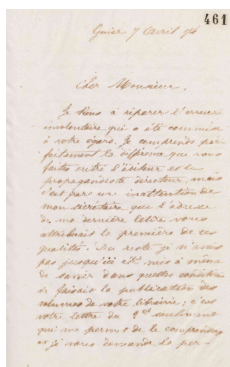 461
Guise 7 Avril 94
Cher Monsieur,
Je tiens à réparer l'erreur
involontaire qui a été commise
à votre égard. Je comprends par
faitement la différence que vous
faites entre l'éditeur et le
propagandiste directeur mais
c'est par une inattention de
mon secrétaire que l'adresse
de ma dernière lettre vous
attribuait la première de ces
qualités. Du reste je n'avais
pas jusqu'ici été mis à même
de savoir dans quelles conditions
se faisait la publication des
volumes de votre librairie; c'est
votre lettre du seulement
qui me permet de le comprendre
et je vous demande la per-